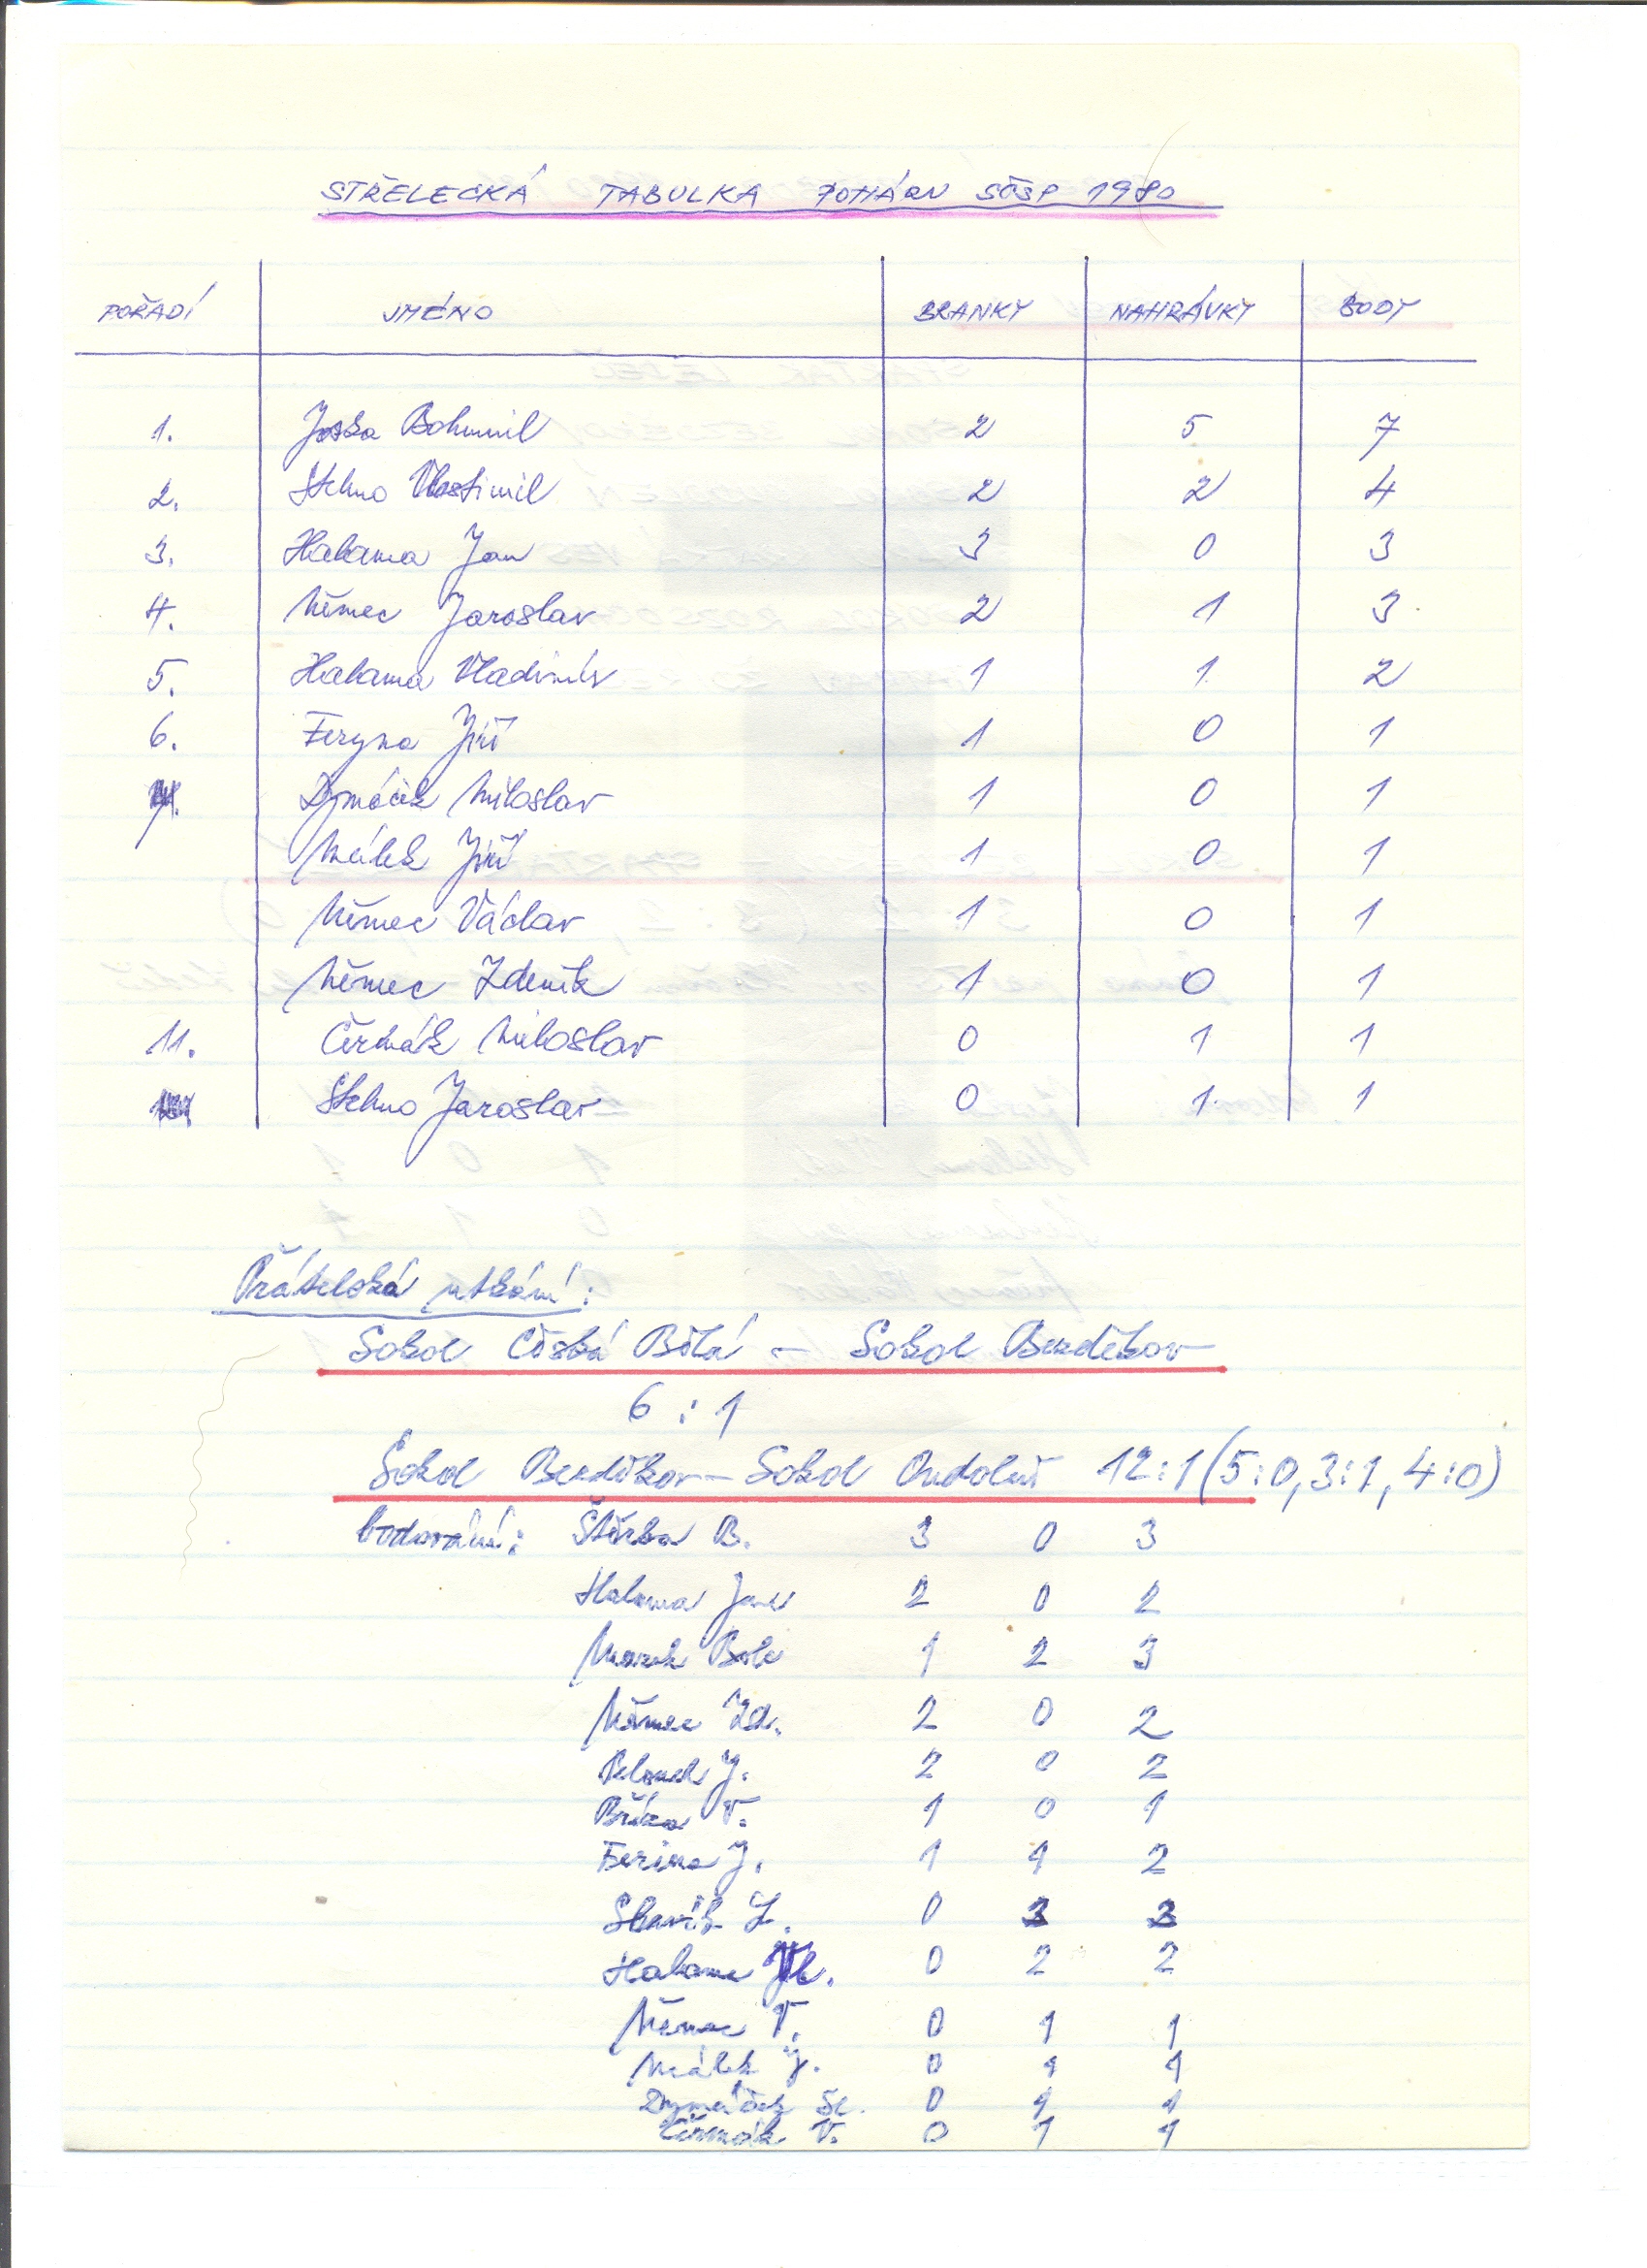 STŘELECKÁ TABULKA POHÁRU SČSP 1980
POŘADÍ JMÉNO BRANKY NAHRÁVKY BODY
1. Joska Bohumil 2 5 7
2. Stehno Vlastimil 2 2 4
3. Halama Jan 3 0 3
4. Němec Jaroslav 2 1 3
5. Halama Vladimír 1 1 2
6. Feryna Jiří 1 0 1
Dymáček Miloslav 1 0 1
Málek Jiří 1 0 1
Němec Václav 1 0 1
Němec Zdeněk 1 0 1
11. Čermák Miloslav 0 1 1
Stehno Jaroslav 0 1 1
Přátelská utkání:
Sokol Česká Bělá - Sokol Bezděkov
6 : 1
Sokol Bezděkov - Sokol Oudoleň 12:1 (5:0, 3:1, 4:0)
bodování: Štěrba B. 3 0 3
Halama Jan 2 0 2
Marek 1 2 3
Němec Zd. 2 0 2
J. 2 0 2
Bříza V. 1 0 1
Ferina J. 1 1 2
Slavík Z. 0 3 3
Halama Vl. 0 2 2
Němec V. 0 1 1
Málek J. 0 1 1
Dymáček Sl. 0 1 1
Čermák V. 0 1 1